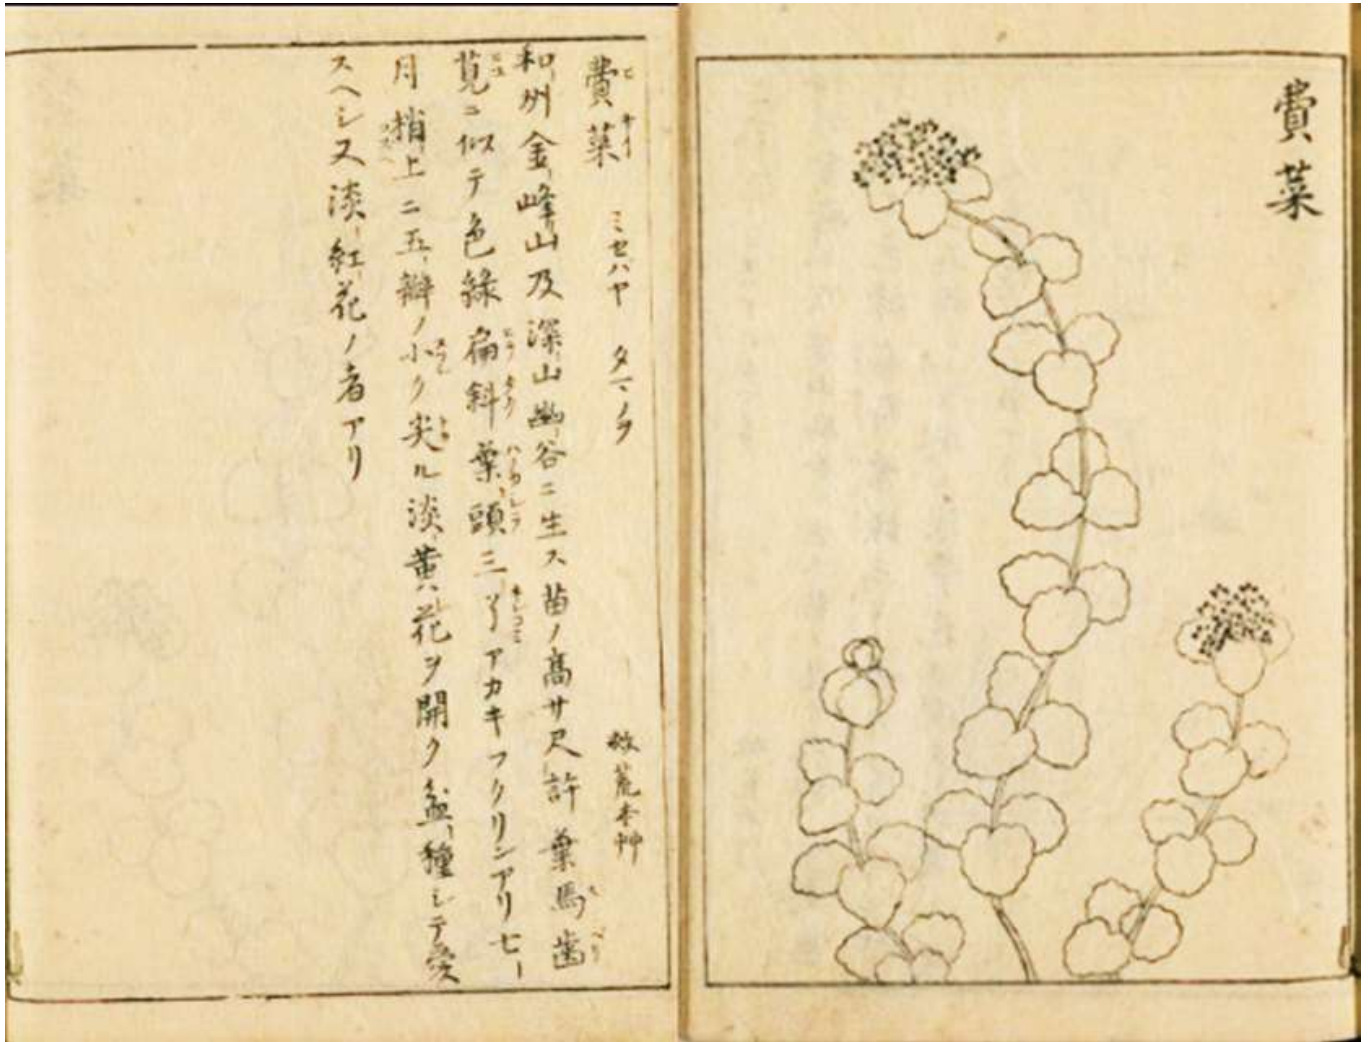 費菜
費菜 ミセバヤ タマノヲ 救荒本艸
和州金峰山及深山幽谷ニ生ス苗ノ高サ尺許葉馬歯
莧ニ似テ色緑扁斜葉頭三アカキフクリンアリ七
月梢上ニ五瓣ノ小ク尖ル淡黄花ヲ開ク盆種シテ愛
スヘシ又淡紅花ノ者アリ